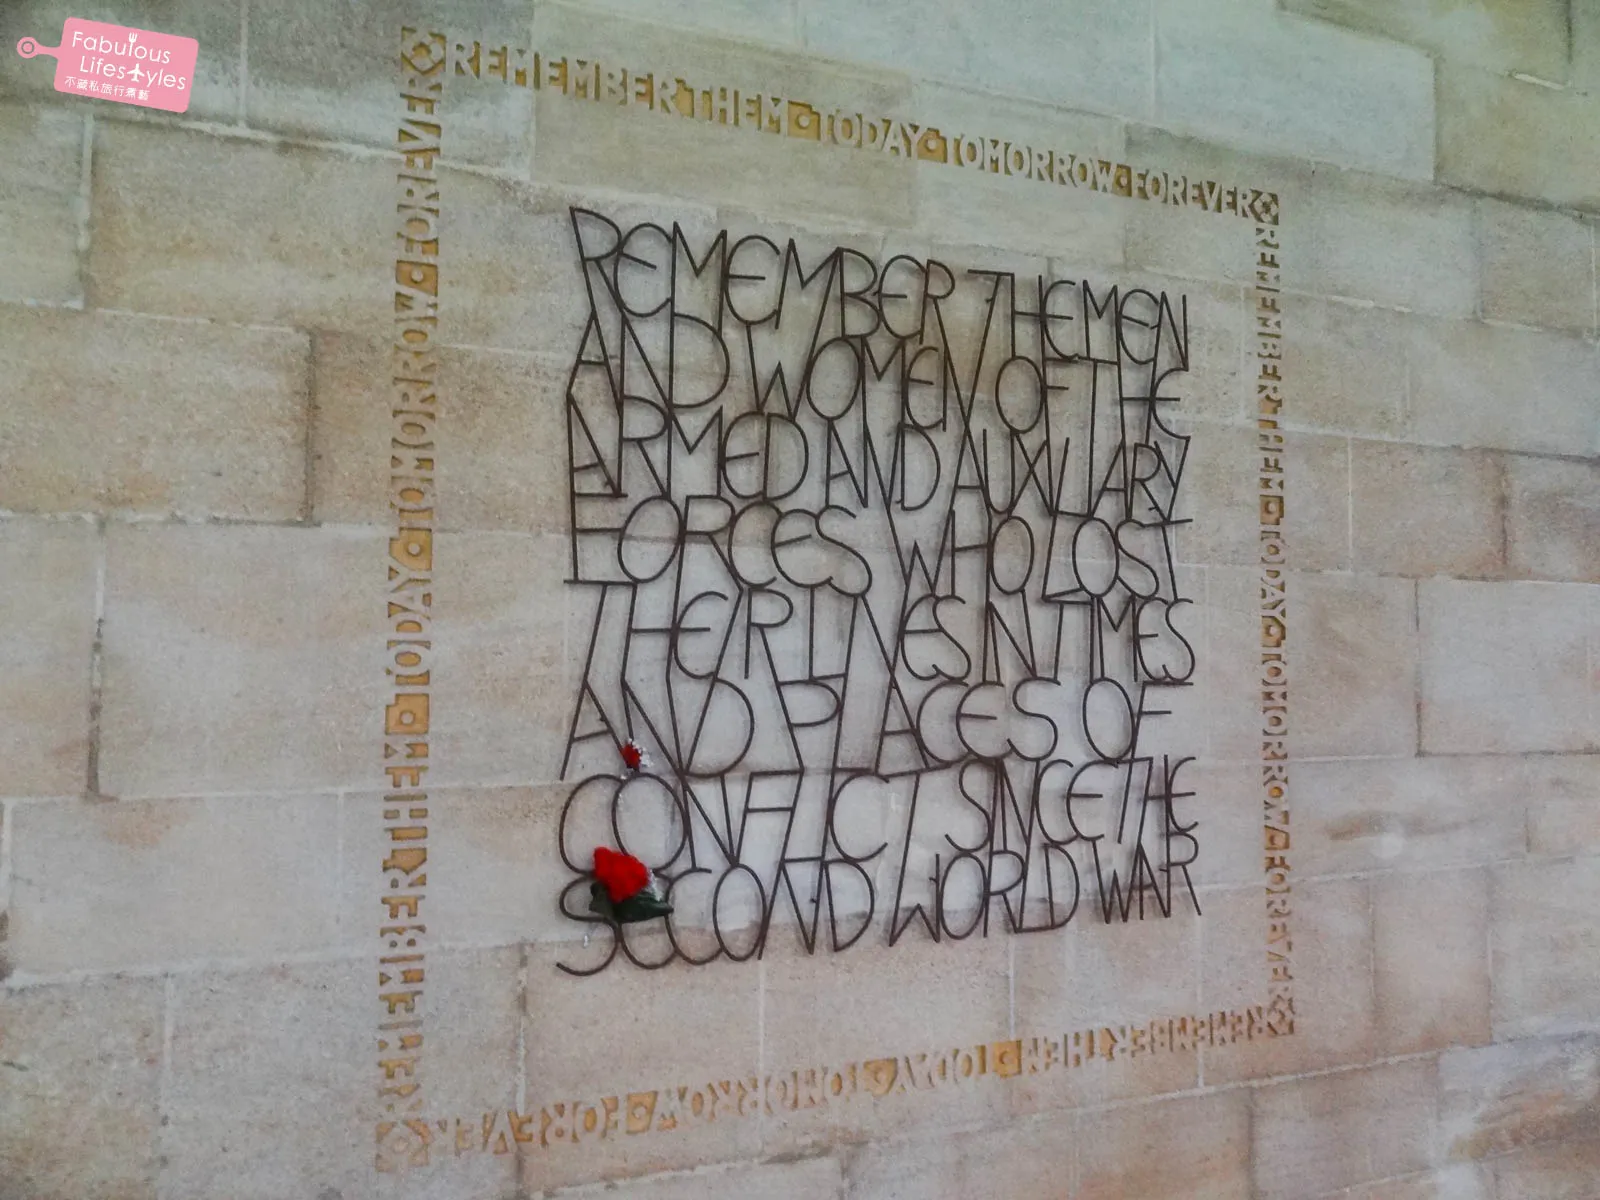 Fabulous
Lifestyles
不藏私旅行煮藝
REMEMBER THEM · TODAY · TOMORROW · FOREVER
REMEMBER THEM · TODAY · TOMORROW · FOREVER
REMEMBER THE MEN
AND WOMEN OF THE
ARMED AND AUXILIARY
FORCES WHO LOST
THEIR LIVES IN TIMES
AND PLACES OF
CONFLICT SINCE THE
SECOND WORLD WAR
REMEMBER THEM · TODAY · TOMORROW · FOREVER
REMEMBER THEM · TODAY · TOMORROW · FOREVER